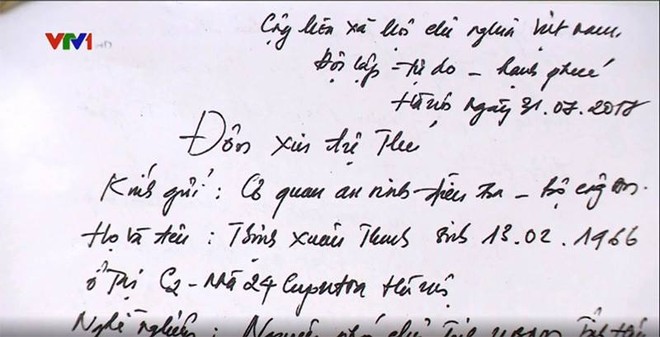 VTV1
Cộng hòa xã hội chủ nghĩa Việt nam
Độc lập - tự do - hạnh phúc
Hà nội ngày 31.07.2017
Đơn xin tự Thú
Kính gửi : Cơ quan an ninh điều tra - bộ công an.
Họ và tên : Trịnh Xuân Thanh sinh 13.02.1966
ở Tại C2 - nhà 24 Ciputra Hà nội
Nghề nghiệp : Nguyên phó chủ Tịch UBND Tỉnh